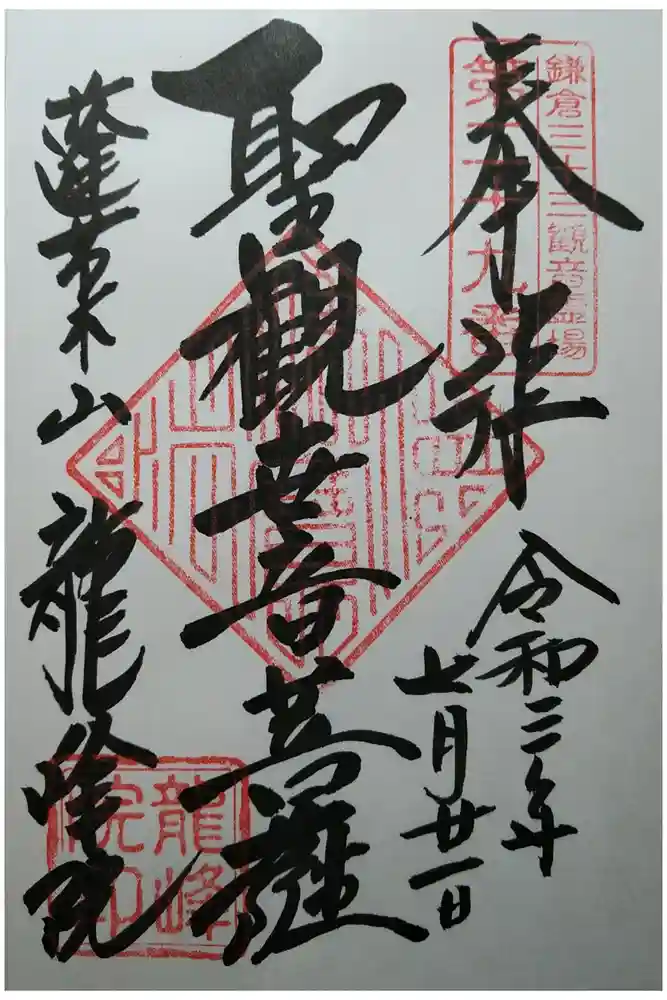 鎌倉三十三観音霊場
第二十九番
奉拝
令和三年
七月廿一日
聖観世音菩薩
蓬莱山 龍峰院
龍峰
院印